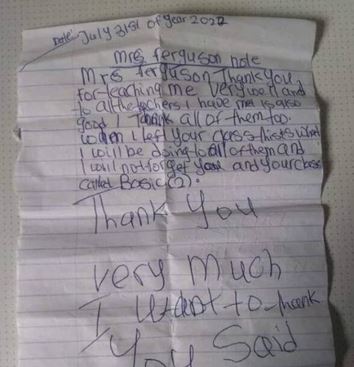 Date: July 31st of year 2022
Mrs ferguson note
Mrs ferguson Thank you
for teaching me very well and
to all the teachers i have me is also
good I Thank all of them too.
when I left your class this is what
I will be doing to all of them and
I will not forget you and your class
called Basic(2).
Thank You
very much
I want to thank
You Said